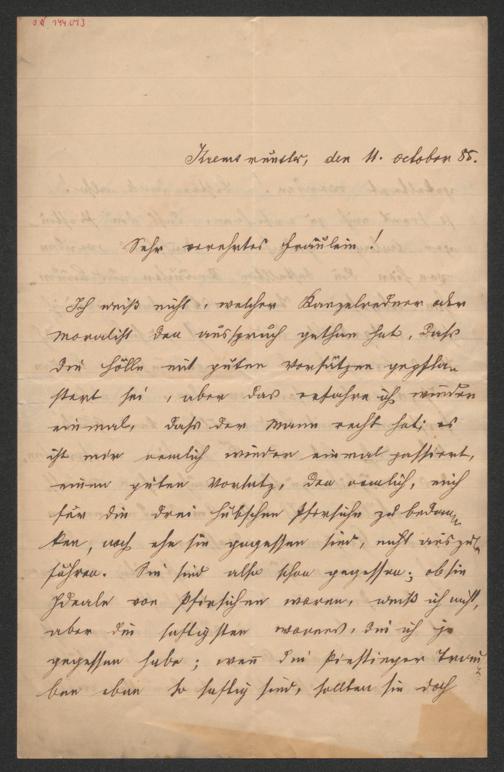 Kremsmünster, den 11. October 85.
Sehr verehrtes Fräulein!
Ich weiß nicht, welcher Kanzelredner oder
Moralist den Ausspruch gethan hat, daß
die Hölle mit guten Vorsätzen gepfla-
stert sei, aber das erfahre ich wieder
einmal, daß der Mann recht hat; es
ist mir nemlich wieder einmal passiert,
einen guten Vorsatz, den nemlich, mich
für die drei hübschen Pfirsiche zu bedan-
ken, noch ehe sie gegessen sind, nicht auszu-
führen. Sie sind also schon gegessen; ob sie
Ideale von Pfirsichen waren, weiß ich nicht,
aber die saftigsten waren's, die ich je
gegessen habe; wenn die Piestinger Trau-
ben eben so saftig sind, sollten sie doch